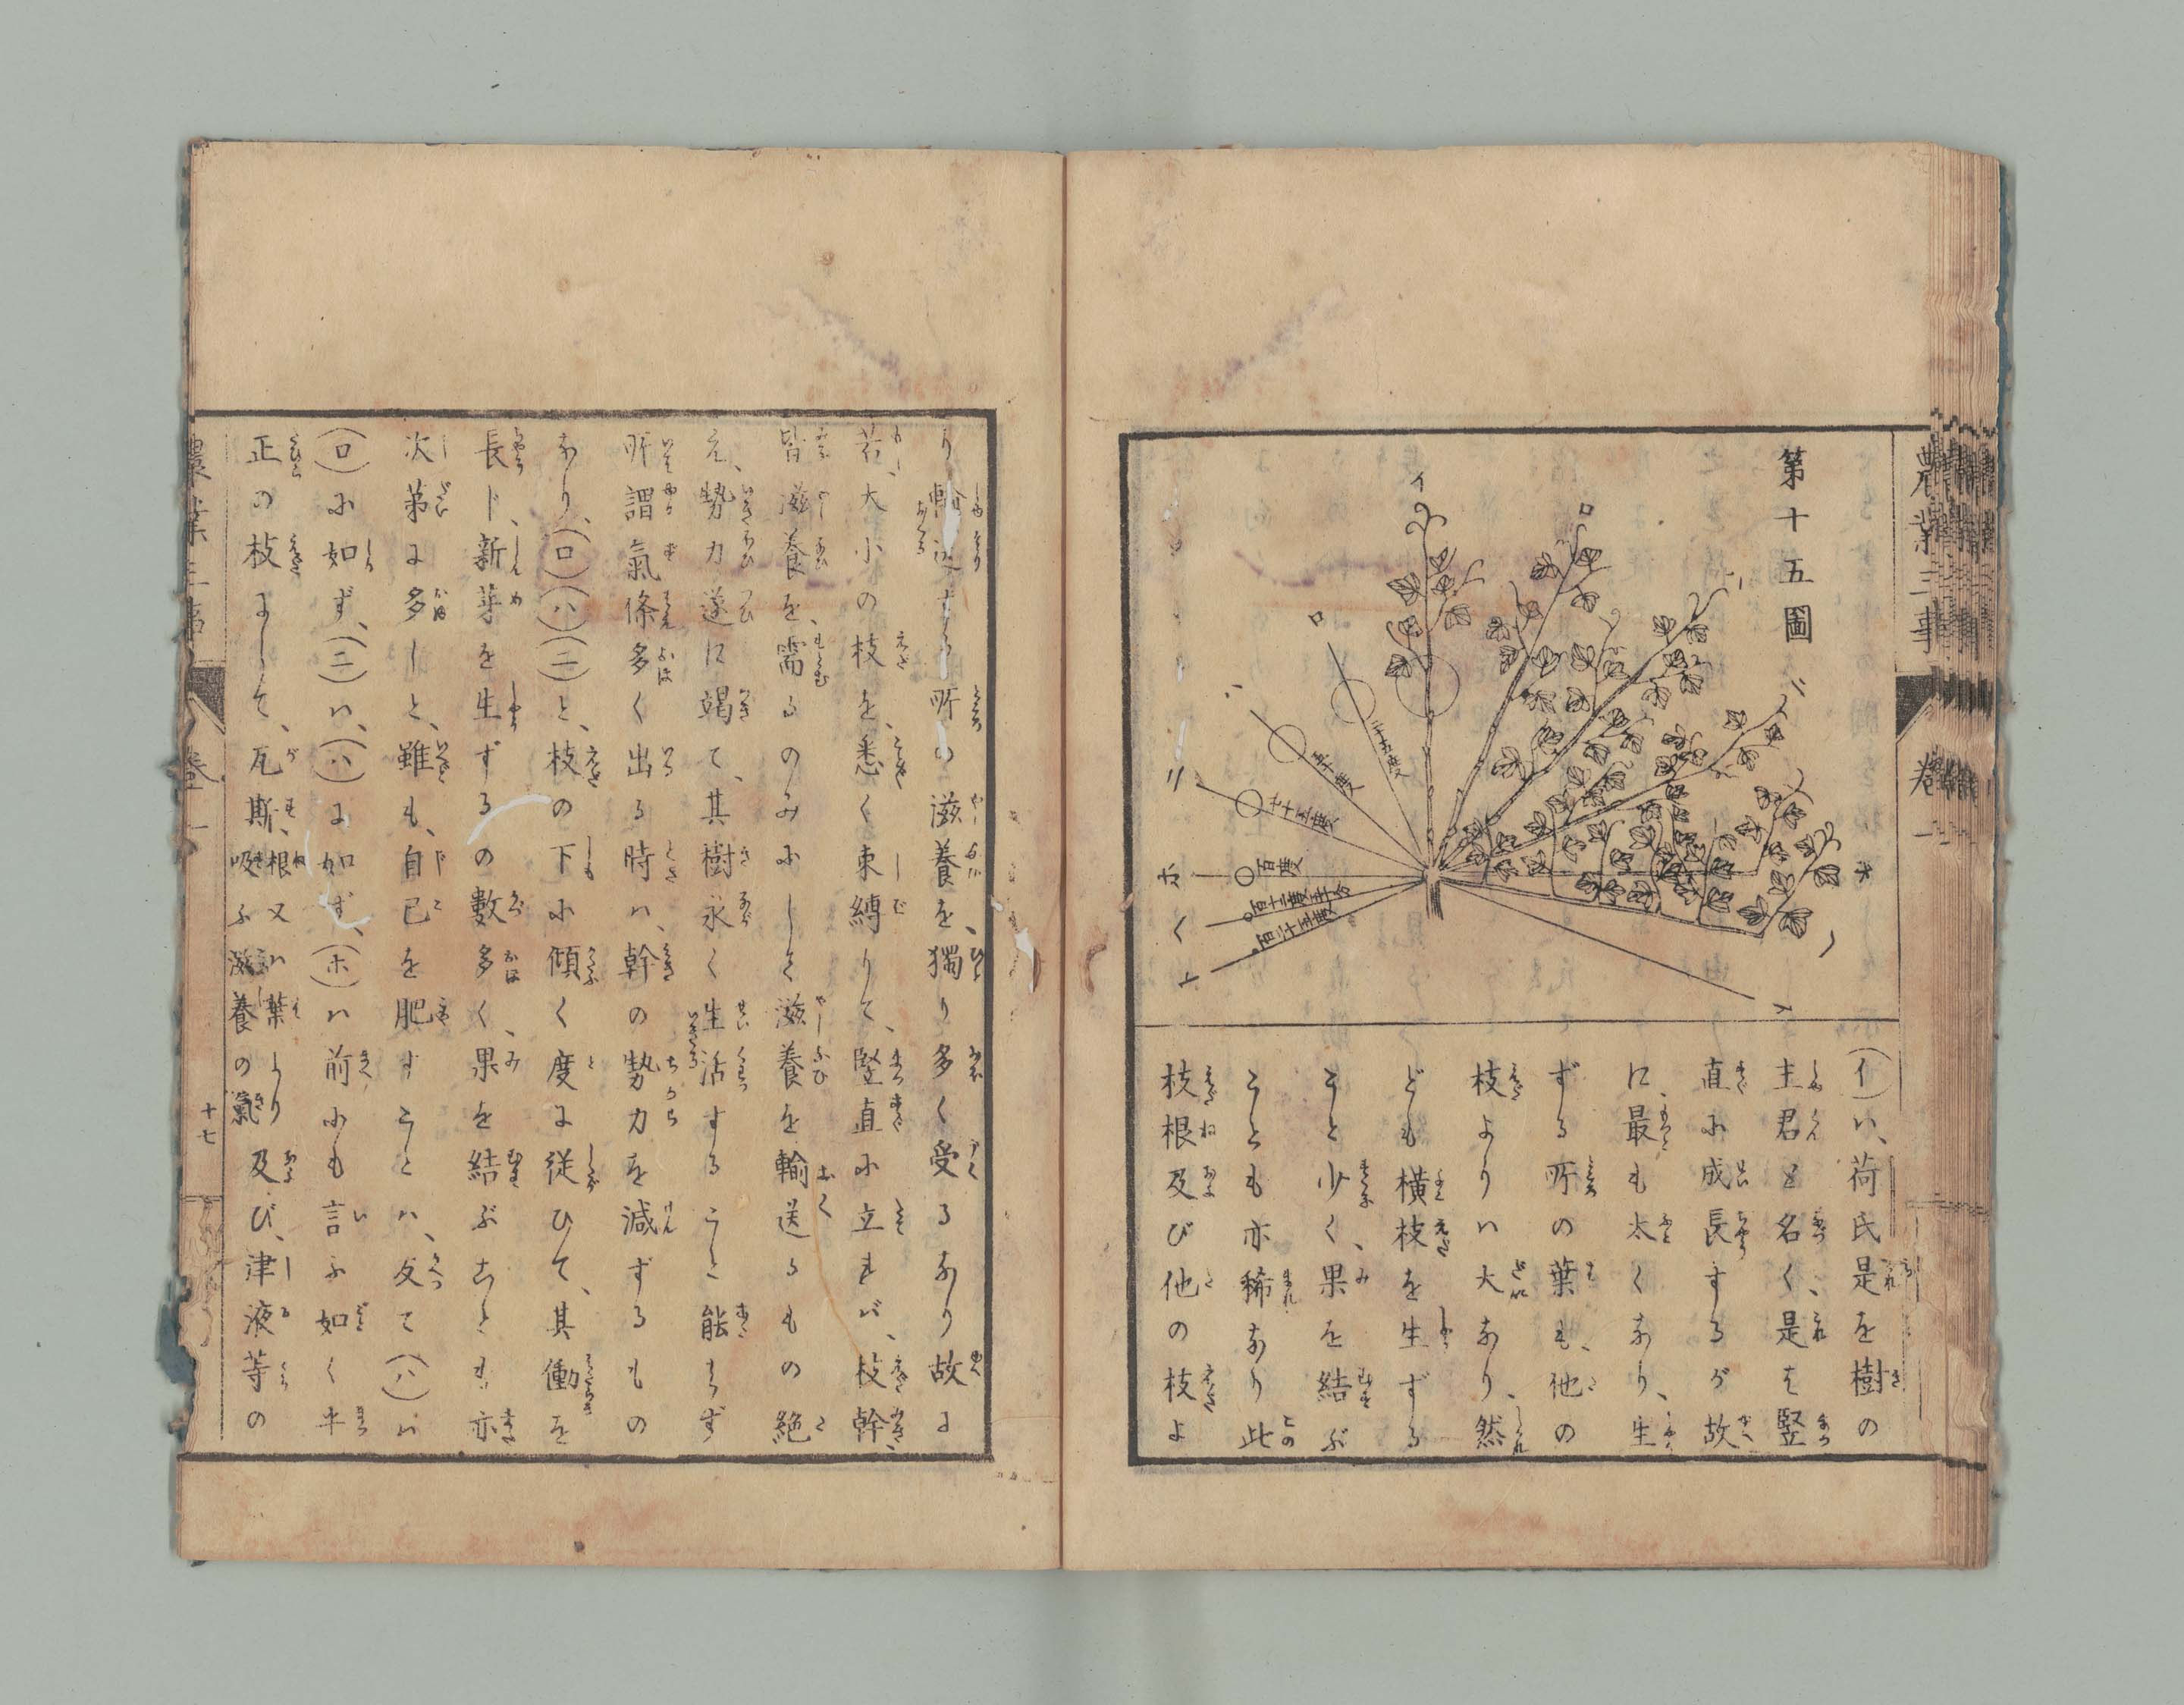 農業三事
卷一
第十五圖
イ
ロ
ハ
ニ
ホ
ロ
ハ
ニ
ホ
へ
ト
二十五度
五十度
七十五度
百度
百十二度半
百二十五度
(イ)ハ、荷氏是を樹の
主君と名く、是は竪
直に成長するが故
に、最も太くなり、生
ずる所の葉も、他の
枝よりハ大なり、然
ども横枝を生ずる
こと少く、果を結ぶ
ことも亦稀なり此
枝根及び他の枝よ
り輸送する所の滋養を、獨り多く受るなり故に
若、大小の枝を、悉く束縛りて、竪直に立れバ、枝幹、
皆滋養を需るのみにして滋養を輸送るもの絶
え、勢力遂に竭て、其樹永く生活すること能はず
所謂氣條多く出る時ハ、幹の勢力を減ずるもの
なり、(ロ)(ハ)(ニ)と、枝の下に傾く度に従ひて、其働を
長ド、新芽を生ずるの數多く、果を結ぶことも亦
次第に多しと、雖も、自己を肥すことハ、反て(ハ)ハ
(ロ)に如ず、(ニ)ハ、(ハ)に如ず、(ホ)ハ前にも言ふ如く平
正の枝にして、瓦斯、根又ハ葉より吸ふ滋養の氣及び、津液等の
農業三事
卷一
十七